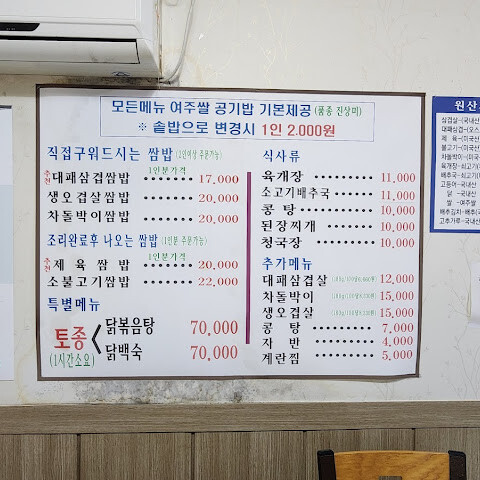 모든메뉴 여주쌀 공기밥 기본제공 (품종 진상미)
※ 솥밥으로 변경시 1인 2.000원
직접구워드시는 쌈밥 (2인이상 주문가능)
1인분가격
추천 대패삼겹쌈밥 17,000
생오겹살쌈밥 20,000
차돌박이쌈밥 20,000
조리완료후 나오는 쌈밥 (1인분 주문가능)
1인분가격
추천 제육쌈밥 20,000
소불고기쌈밥 22,000
특별메뉴
토종 (1시간소요)
닭볶음탕 70,000
닭백숙 70,000
식사류
육개장 11,000
소고기배추국 11,000
콩탕 10,000
된장찌개 10,000
청국장 10,000
추가메뉴
대패삼겹살 12,000
차돌박이 15,000
생오겹살 15,000
콩탕 7,000
자반 4,000
계란찜 5,000
원산
삼겹살-(국내산
대패삼겹-(오스
제육-(미국산
불고기-(미국산
차돌박이-(미국산
육개장-쇠고기(
배추국-쇠고기(
고등어-국내산
닭-국내산
쌀-여주쌀
배추김치-배추(국
고추가루-국내산